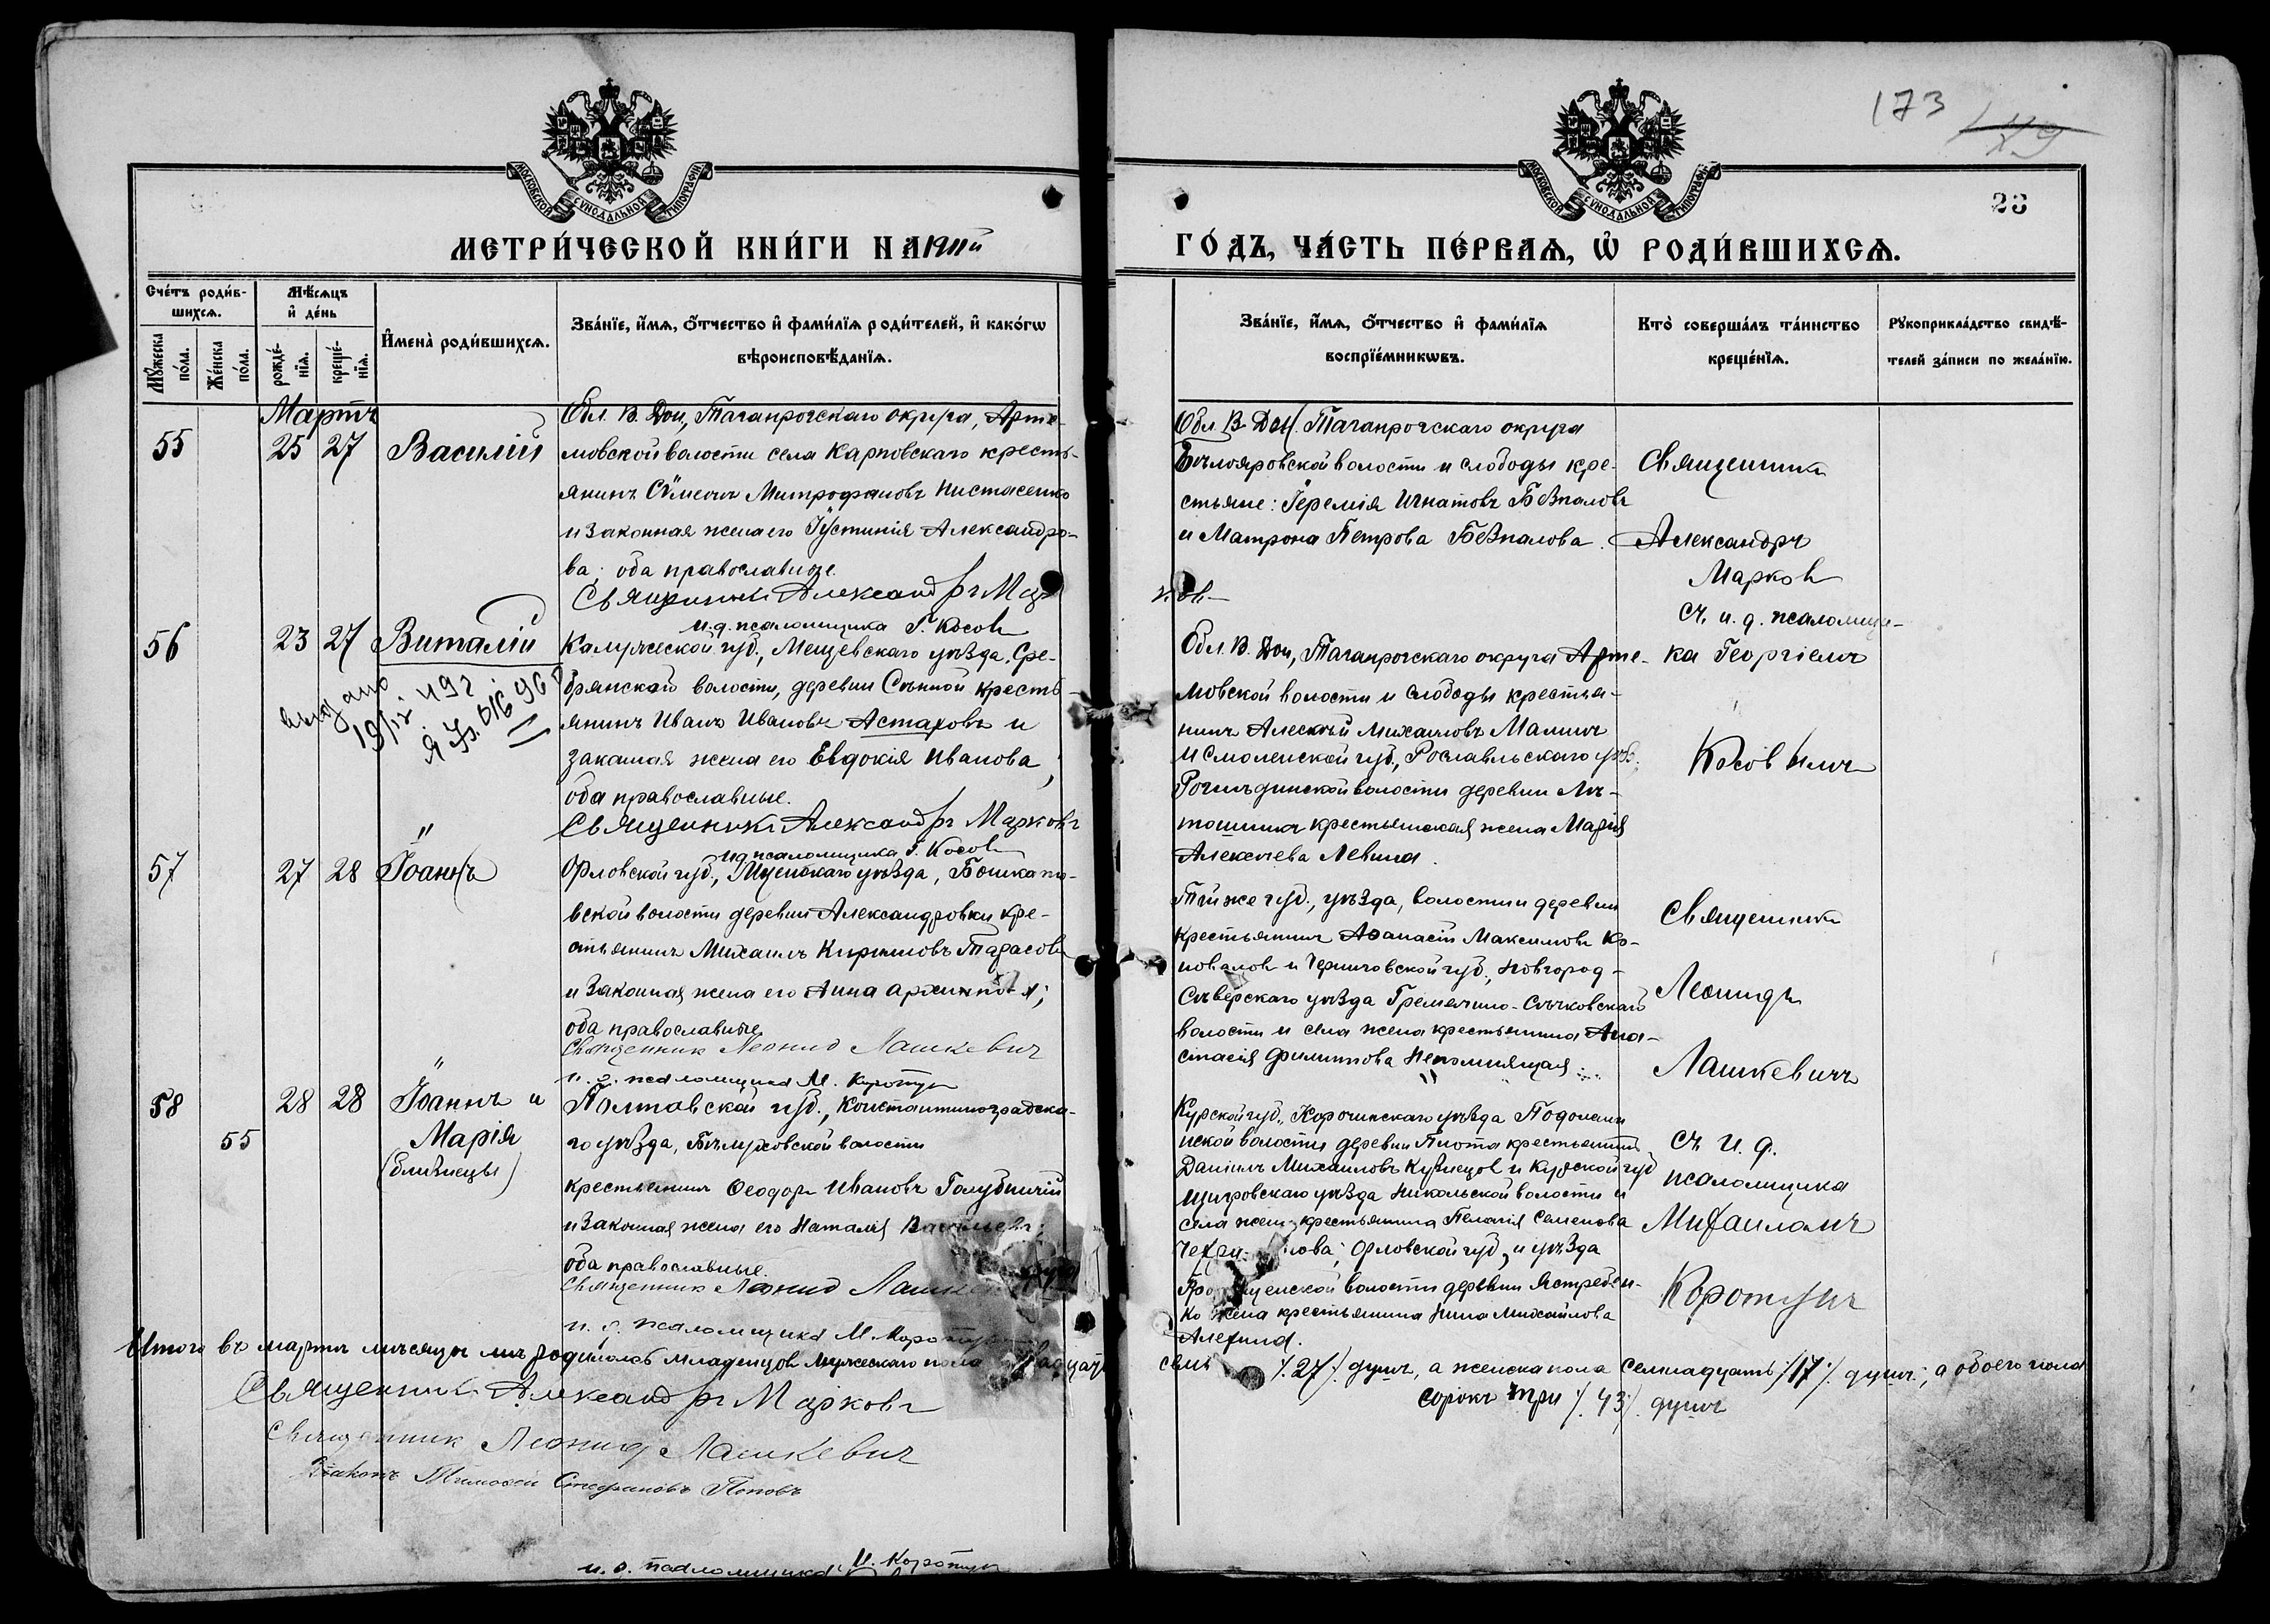 173
23
МОСКОВСКОЙ СѴНОДАЛЬНОЙ ТИПОГРАФІИ
МОСКОВСКОЙ СѴНОДАЛЬНОЙ ТИПОГРАФІИ
МЕТРИ́ЧЕСКОЙ КНИ́ГИ НА 1911й
ГО́ДЪ, ЧА́СТЬ ПЕ́РВАѦ, Ѡ РОДИ́ВШИХСѦ.
Сче́тъ роди́в-
шихсѧ.
Мꙋ́жеска по́ла.
Же́нска по́ла.
Мѣ́сѧцъ
и҆ де́нь
рожде́-
нїѧ.
креще́-
нїѧ.
И҆мена̀ роди́вшихсѧ.
Зва́нїе, и҆́мѧ, ѻ҆́тчество и҆ фами́лїѧ роди́телей, и҆ како́гѡ
вѣроисповѣ́данїѧ.
Зва́нїе, и҆́мѧ, ѻ҆́тчество и҆ фами́лїѧ
воспрїе́мникѡвъ.
Кто̀ соверша́лъ та́инство
креще́нїѧ.
Рꙋкоприкла́дство свидѣ́-
телей за́писи по жела́нїю.
Мартъ
55
25 27
Василій
Обл. В. Дон., Таганрогскаго округа, Арте-
мовской волости села Карповскаго кресть-
янинъ Сѵмеонъ Митрофановъ
и законная жена его Іустинія Александро-
ва; оба православные.
Священникъ Александръ Мар
ковъ
и.д. псаломщика Г. Косовъ
Обл. В. Дон. Таганрогскаго округа
Бѣлояровской волости и слободы кре-
стьяне: Іеремія Игнатовъ Безпаловъ
и Матрона Петрова Безпалова.
Священникъ
Александръ
Марковъ
съ и. д. псаломщи-
ка Георгіемъ
Косовымъ
56
23 27
Виталій
выдано
Калужской губ., Мещевскаго уѣзда, Сре-
брянской волости, деревни Сѣнной кресть-
янинъ Иванъ Ивановъ Астаховъ и
законная жена его Евдокія Иванова;
оба православные.
Священникъ Александръ Марковъ
и.д. псаломщика Г. Косовъ
Обл. В. Дон., Таганрогскаго округа Арте-
мовской волости и слободы крестья-
нинъ Алексѣй Михаиловъ Малинъ
и Смоленской губ., Рославльскаго уѣз.
волости деревни
крестьянская жена Марія
Алексѣева Левина.
57
"
27 28
Іоаннъ
Орловской губ., Мценскаго уѣзда,
вской волости деревни Александровки кре-
стьянинъ Михаилъ Кирилловъ Тарасовъ
и законная жена его Анна
оба православные
Священник Леонид Лашкевич
и. д. псаломщика М. Коротун
Той же губ., уѣзда, волости и деревни
крестьянинъ Аѳанасій Максимовъ Ко-
новаловъ и Черниговской губ., Новгород-
Сѣверскаго уѣзда
волости и села жена крестьянина Ана-
стасія Филиппова Непомнящая
Священникъ
Леонидъ
Лашкевичъ
съ и. д.
псаломщика
Михаиломъ
Коротунъ
58
55
"
28 28
Іоаннъ и
Марія
(близнецы)
Полтавской губ., Константиноградска-
го уѣзда, Бѣлуховской волости
крестьянинъ Ѳеодоръ Ивановъ Голубничій
и законная жена его Наталія
оба православные.
Священник Леонид
и. д. псаломщика М. Коротун
Курской губ., Корочинскаго уѣзда
волости деревни крестьянинъ
Даніилъ Михаиловъ Кузнецовъ и Курской губ
Щигровскаго уѣзда Никольской волости и
села жена крестьянина Пелагія Семенова
Орловской губ. и уѣзда
волости деревни
ко жена крестьянина Нина Михайлова
Алехина.
Итого въ мартѣ мѣсяцѣ мѣ родилось младенцовъ мужескаго пола двадцать
семь /.27./ душъ, а женска пола семнадцать /.17./ душъ; а обоего пола
сорокъ три /.43./ душъ
Священникъ Александръ Марковъ
Священник Леонид Лашкевич
Діаконъ Тимоѳей Стефановъ Поповъ
и. д. псаломщика М. Коротун